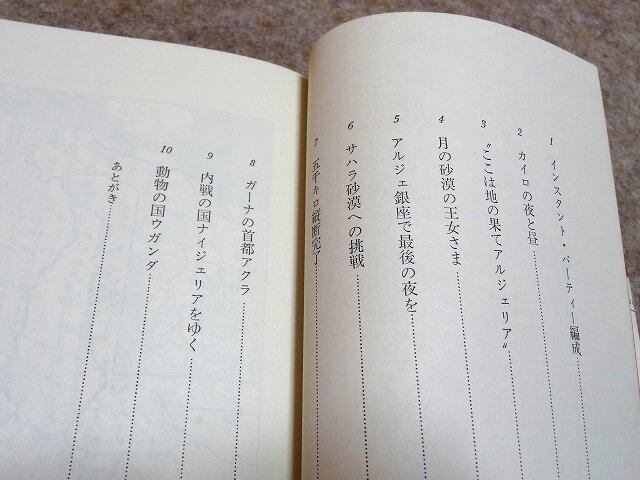 1 インスタント・パーティー編成
2 カイロの夜と昼
3 “ここは地の果てアルジェリア”
4 月の砂漠の王女さま
5 アルジェ銀座で最後の夜を
6 サハラ砂漠への挑戦
7 五千キロ縦断完了
8 ガーナの首都アクラ
9 内戦の国ナイジェリアをゆく
10 動物の国ウガンダ
あとがき